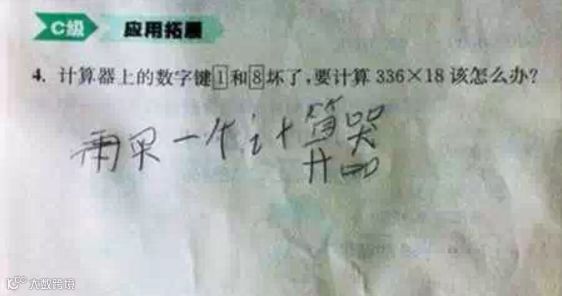 C级 应用拓展
4. 计算器上的数字键1和8坏了,要计算 336×18 该怎么办?
再买一个计算器
大数跨境